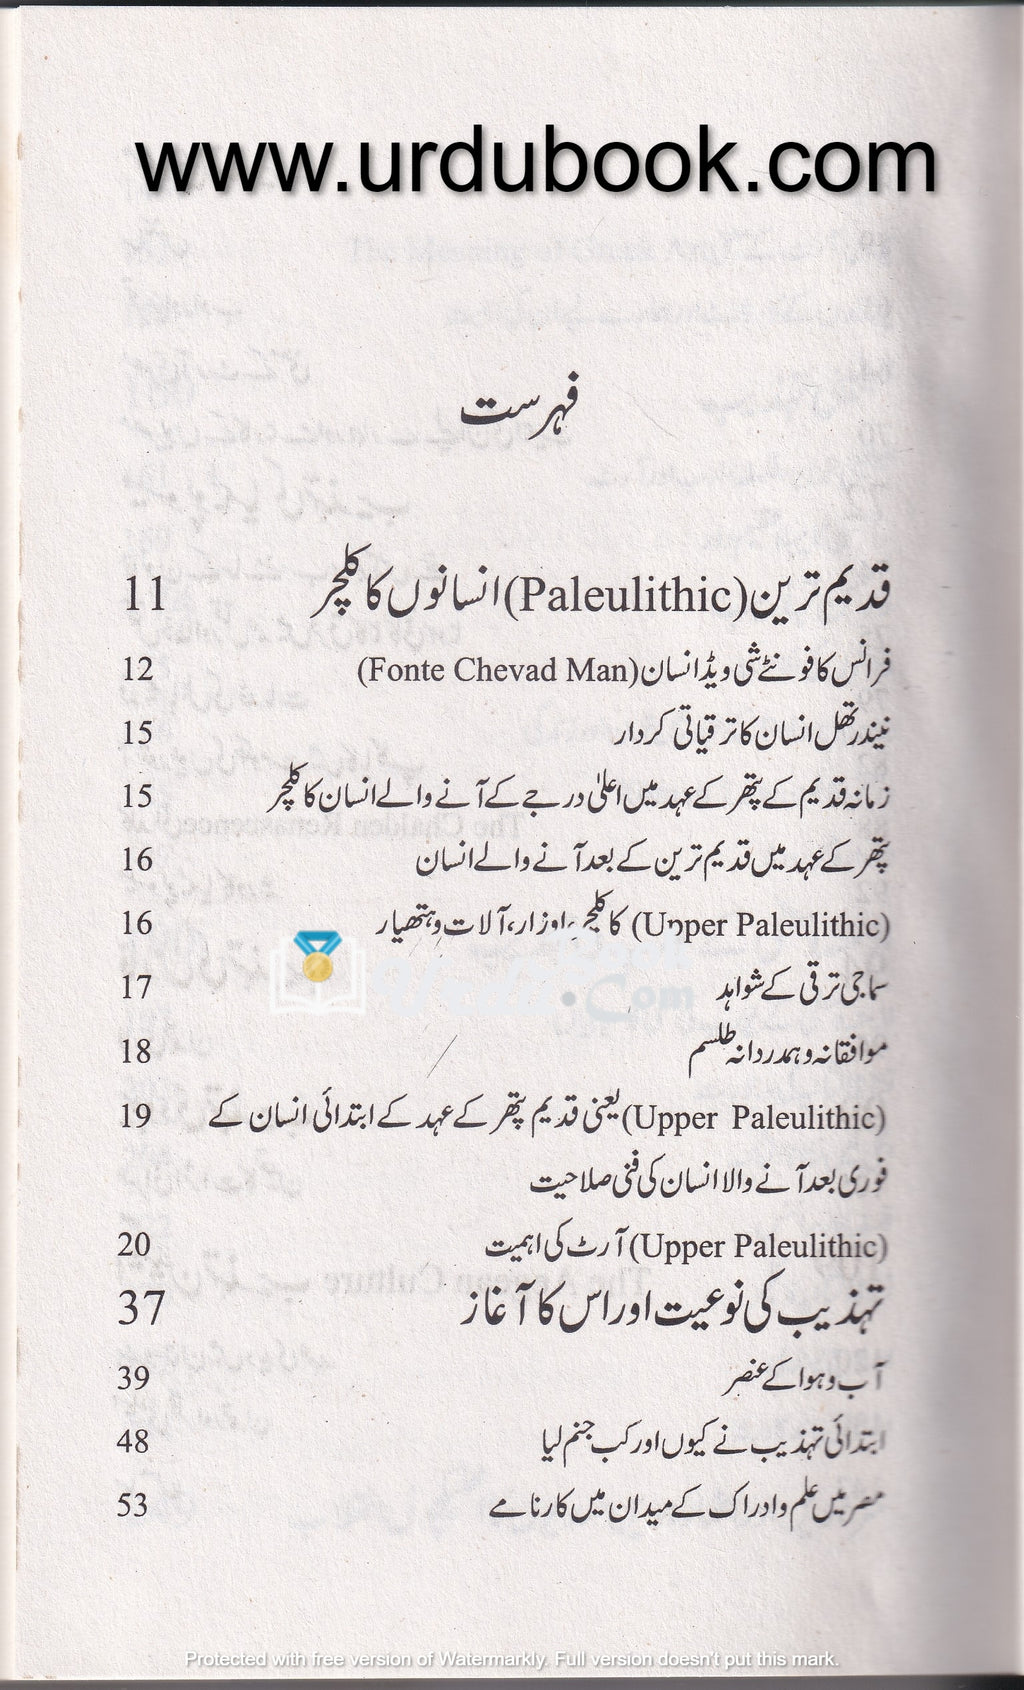 www.urdubook.com
فہرست
قدیم ترین (Paleulithic) انسانوں کا کلچر 11
فرانس کا فونٹے شی ویڈ انسان (Fonte Chevad Man) 12
نیندرتھل انسان کا ترقیاتی کردار 15
زمانہ قدیم کے پتھر کے عہد میں اعلیٰ درجے کے آنے والے انسان کا کلچر 15
پتھر کے عہد میں قدیم ترین کے بعد آنے والے انسان 16
(Upper Paleulithic) کا کلچر، اوزار، آلات و ہتھیار 16
سماجی ترقی کے شواہد 17
موافقانہ و ہمدردانہ طلسم 18
(Upper Paleulithic) یعنی قدیم پتھر کے عہد کے ابتدائی انسان کے 19
فوری بعد آنے والا انسان کی فنی صلاحیت
(Upper Paleulithic) آرٹ کی اہمیت 20
تہذیب کی نوعیت اور اس کا آغاز 37
آب و ہوا کے عنصر 39
ابتدائی تہذیب نے کیوں اور کب جنم لیا 48
مصر میں علم و ادراک کے میدان میں کارنامے 53
Protected with free version of Watermarkly. Full version doesn't put this mark.